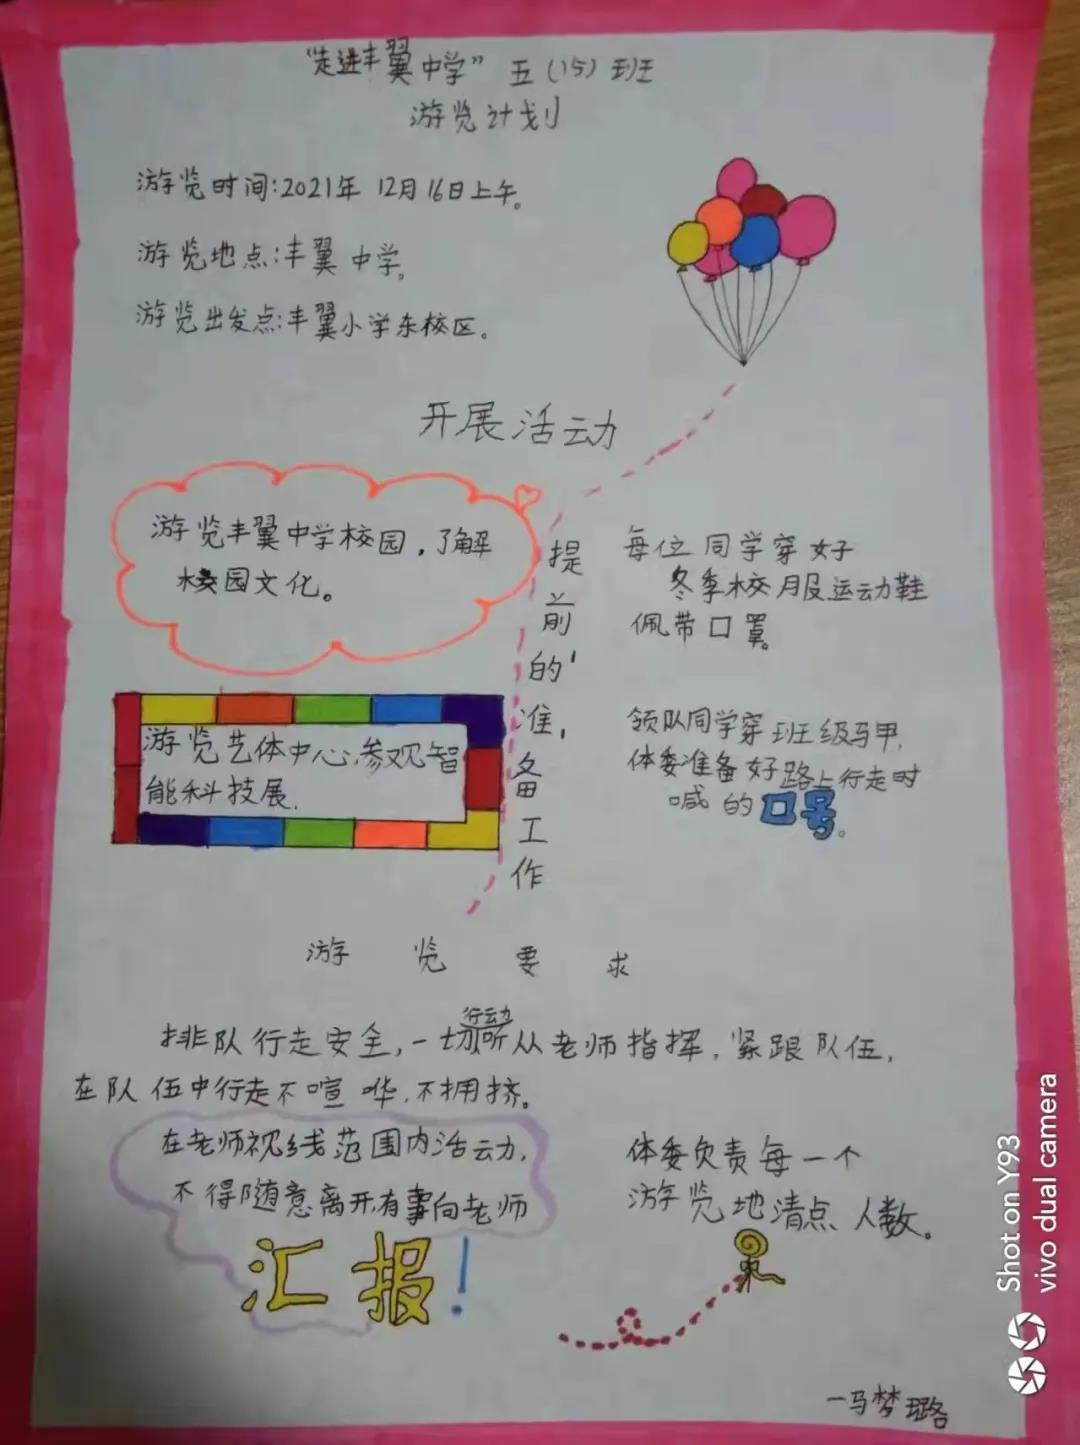 “走进丰翼中学” 五(15)班
游览计划
游览时间:2021年 12月16日上午。
游览地点:丰翼中学。
游览出发点:丰翼小学东校区。
开展活动
游览丰翼中学校园,了解
校园文化。
游览艺体中心,参观智
能科技展.
提前的准备工作
每位同学穿好
冬季校服运动鞋
佩带口罩。
领队同学穿班级马甲,
体委准备好路上行走时
喊的口号。
游览要求
排队行走安全,一切行动听从老师指挥.紧跟队伍,
在队伍中行走不喧哗,不拥挤。
在老师视线范围内活动,
不得随意离开,有事向老师
汇报!
体委负责每一个
游览地清点人数。
—马梦璐
Shot on Y93
vivo dual camera